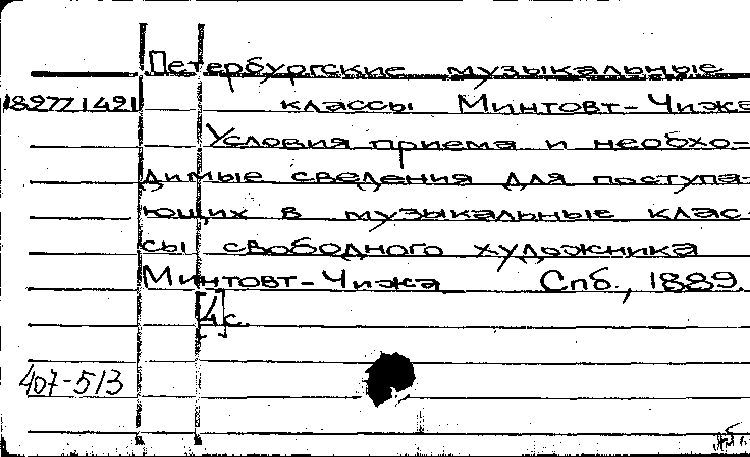 Петербургские музыкальные
1897714 91 классы Минтовт-Чижа
Условия приема и необхо=
димые сведения для поступа-
ющих в музыкальные клас
сы свободного художника
Минтовт-Чижа Спб., 1889.
[4]с.
407-513